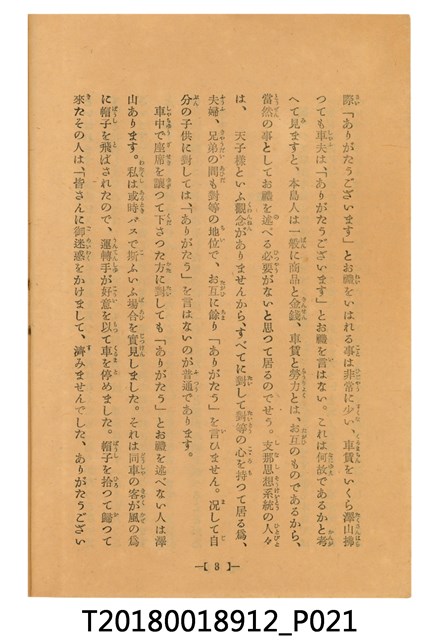 際「ありがたうございます」とお禮をいはれる事は非常に少い、車賃をいくら澤山拂
つても車夫は、「ありがたうございます」とお禮を言はない。これは何故であるかと考
へて見ますと、本島人は一般に商品と金錢、車賃と勞力とは、お互のものであるから、
當然の事としてお禮を述べる必要がないと思つて居るのでせう。支那思想系統の人々
は、天子樣といふ觀念がありませんから、すべてに對して對等の心を持つて居る爲、
夫婦、兄弟の間も對等の地位で、お互に餘り「ありがたう」を言ひません。況して自
分の子供に對しては、「ありがたう」を言はないのが普通であります。
車中で座席を讓つて下さつた方に對しても「ありがたう」とお禮を述べない人は澤
山あります。私は或時バスで斯ふいふ場合を實見しました。それは同車の客が風の爲
に帽子を飛ばされたので、運轉手が好意を以て車を停めました。帽子を拾つて歸つて
來たその人は、「皆さんに御迷惑をかけまして、濟みませんでした、ありがたうござい
—【 8 】—
T20180018912_P021